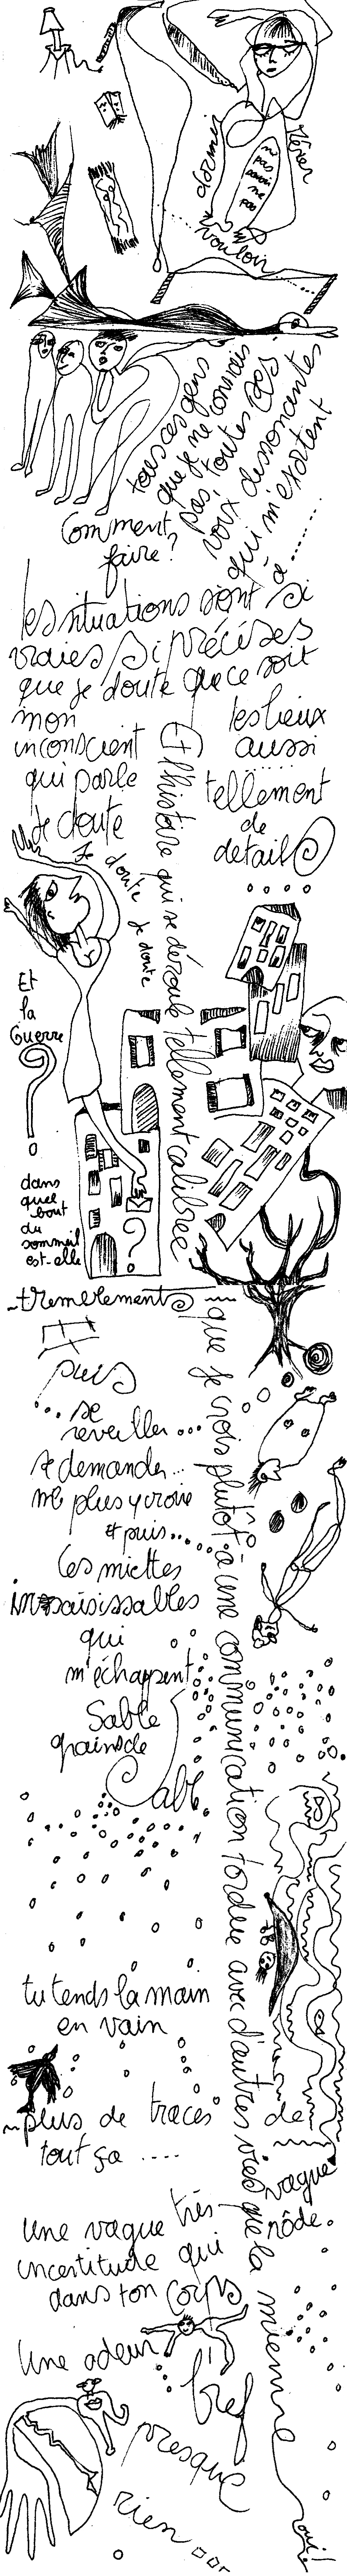 dormir
rêver
ne
pas
savoir
ne
pas
vouloir
tous ces gens
que je ne connais
pas, toutes ces
voix dissonantes
qui m'exortent
à ........
Comment
faire?
les situations sont si
vraies / si précises
que je doute que ce soit
mon
inconscient
qui parle
je doute
je doute
je doute
les lieux
aussi
.....
tellement
de
détails
Et l'histoire qui se déroule tellement calibrée
que je crois plutôt à une communication tordue avec d'autres vies que la mienne
oui!
Et
la
Guerre
?
dans
quel
bout
du
sommeil
est-elle
?
tremblements
Et
puis
... se
réveiller ...
se demander...
ne plus y croire
et puis.....
les miettes
insaisissables
qui
m'échappent
Sable
grains de
Sable
tu tends la main
en vain
plus de traces de
tout ça ....
vague
rôde.
Une vague très
incertitude qui
dans ton corps
Une odeur
bref
presque
rien ...